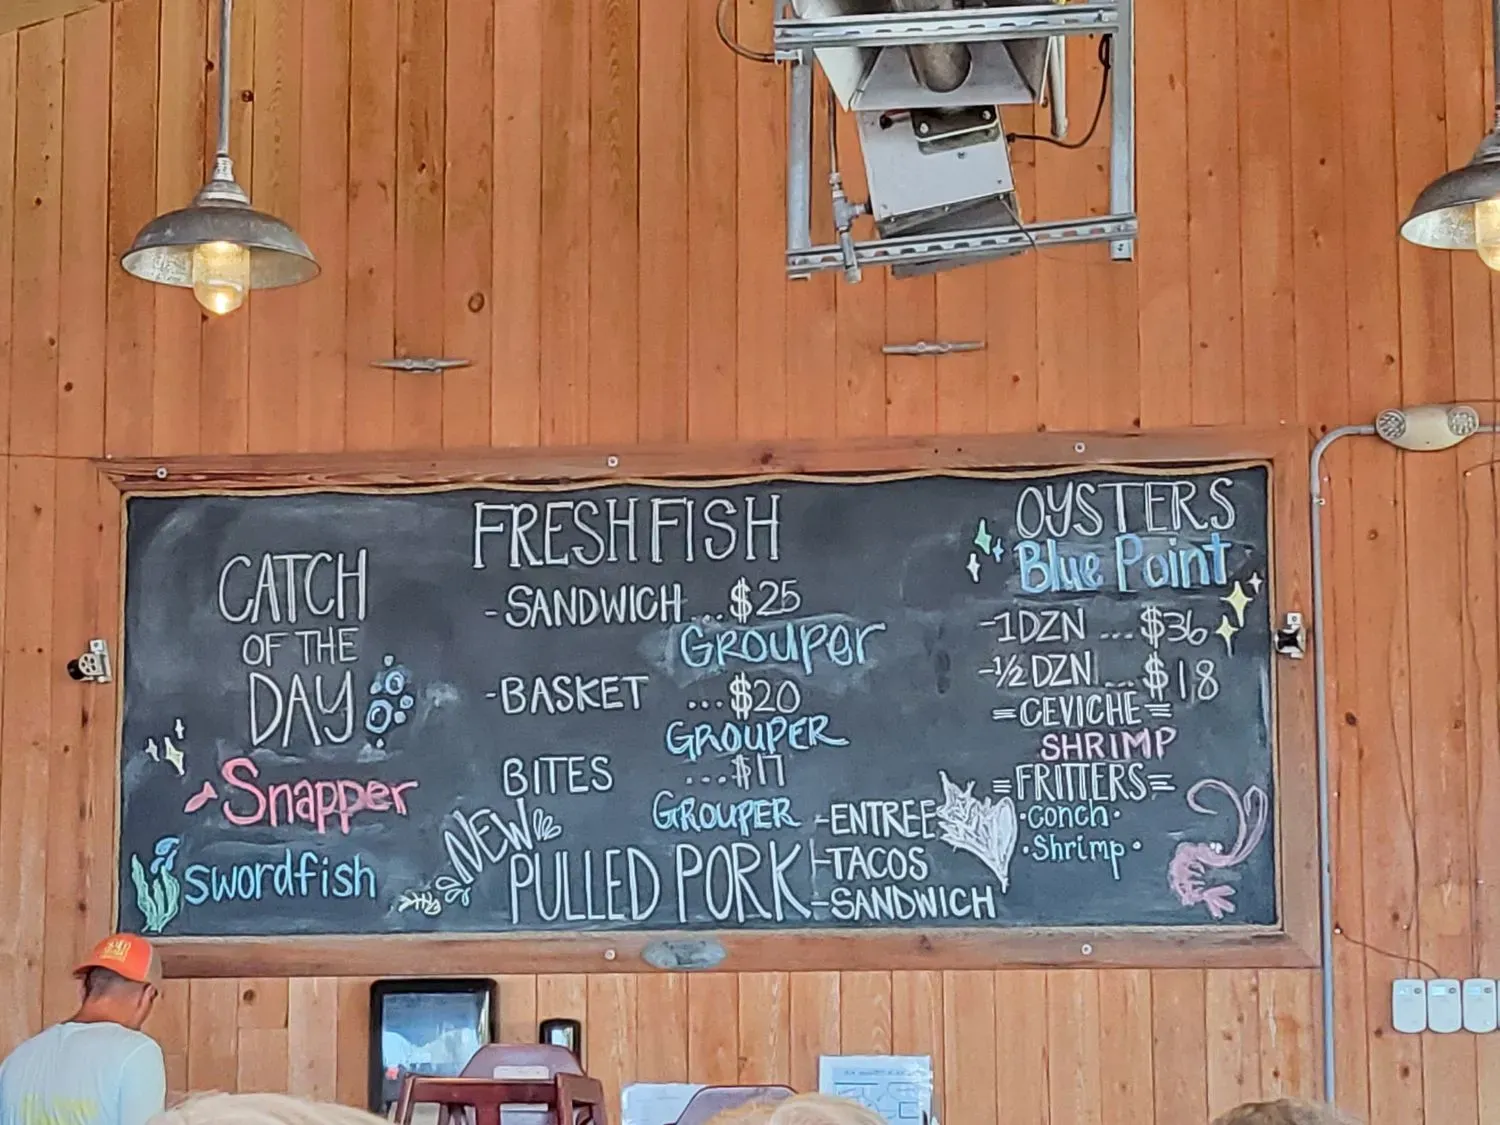 CATCH
OF THE
DAY
Snapper
swordfish
FRESH FISH
- SANDWICH ... $25
GROUPER
- BASKET ... $20
GROUPER
BITES ... $17
GROUPER
NEW
PULLED PORK
- ENTREE
- TACOS
- SANDWICH
OYSTERS
Blue Point
- 1 DZN ... $36
- ½ DZN ... $18
= CEVICHE =
SHRIMP
= FRITTERS =
• conch •
• Shrimp •